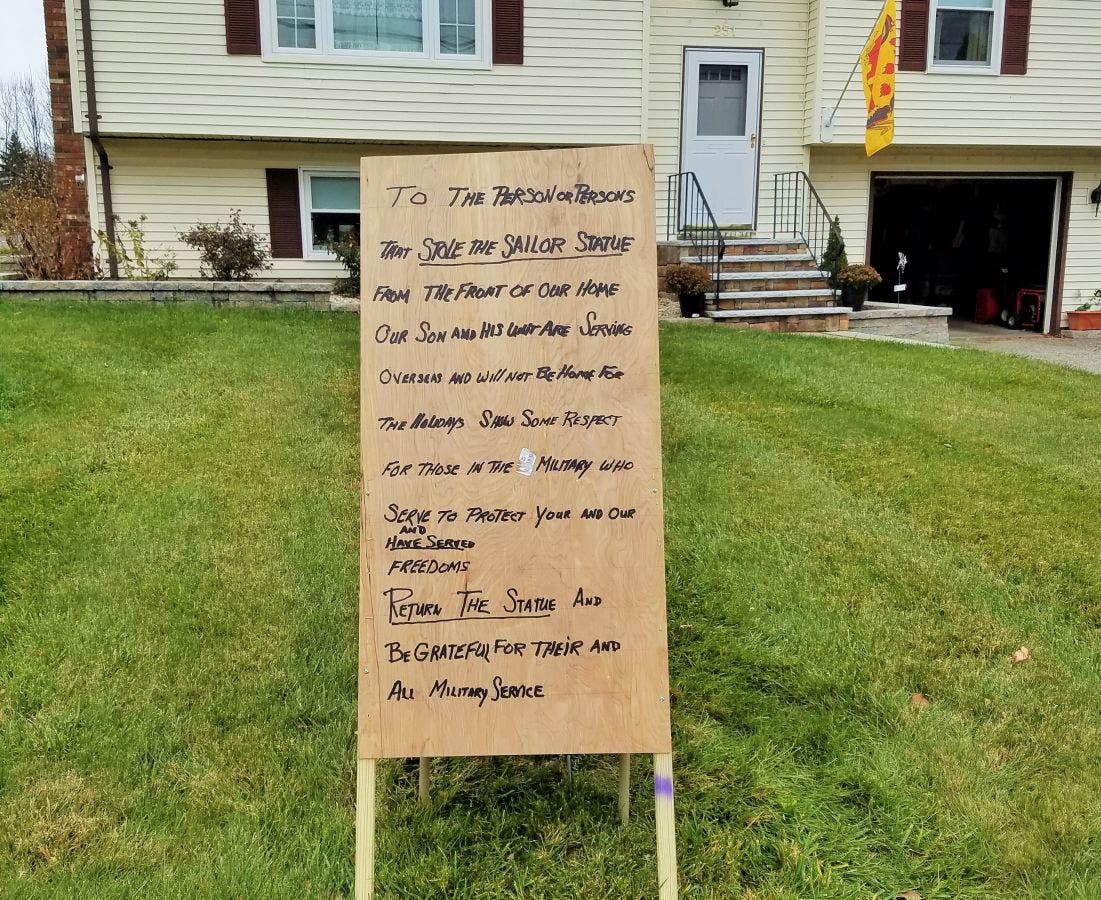 251
TO THE PERSON OR PERSONS
THAT STOLE THE SAILOR STATUE
FROM THE FRONT OF OUR HOME
OUR SON AND HIS UNIT ARE SERVING
OVERSEAS AND WILL NOT BE HOME FOR
THE HOLIDAYS SHOW SOME RESPECT
FOR THOSE IN THE MILITARY WHO
SERVE TO PROTECT YOUR AND OUR
AND
HAVE SERVED
FREEDOMS
RETURN THE STATUE AND
BE GRATEFUL FOR THEIR AND
ALL MILITARY SERVICE